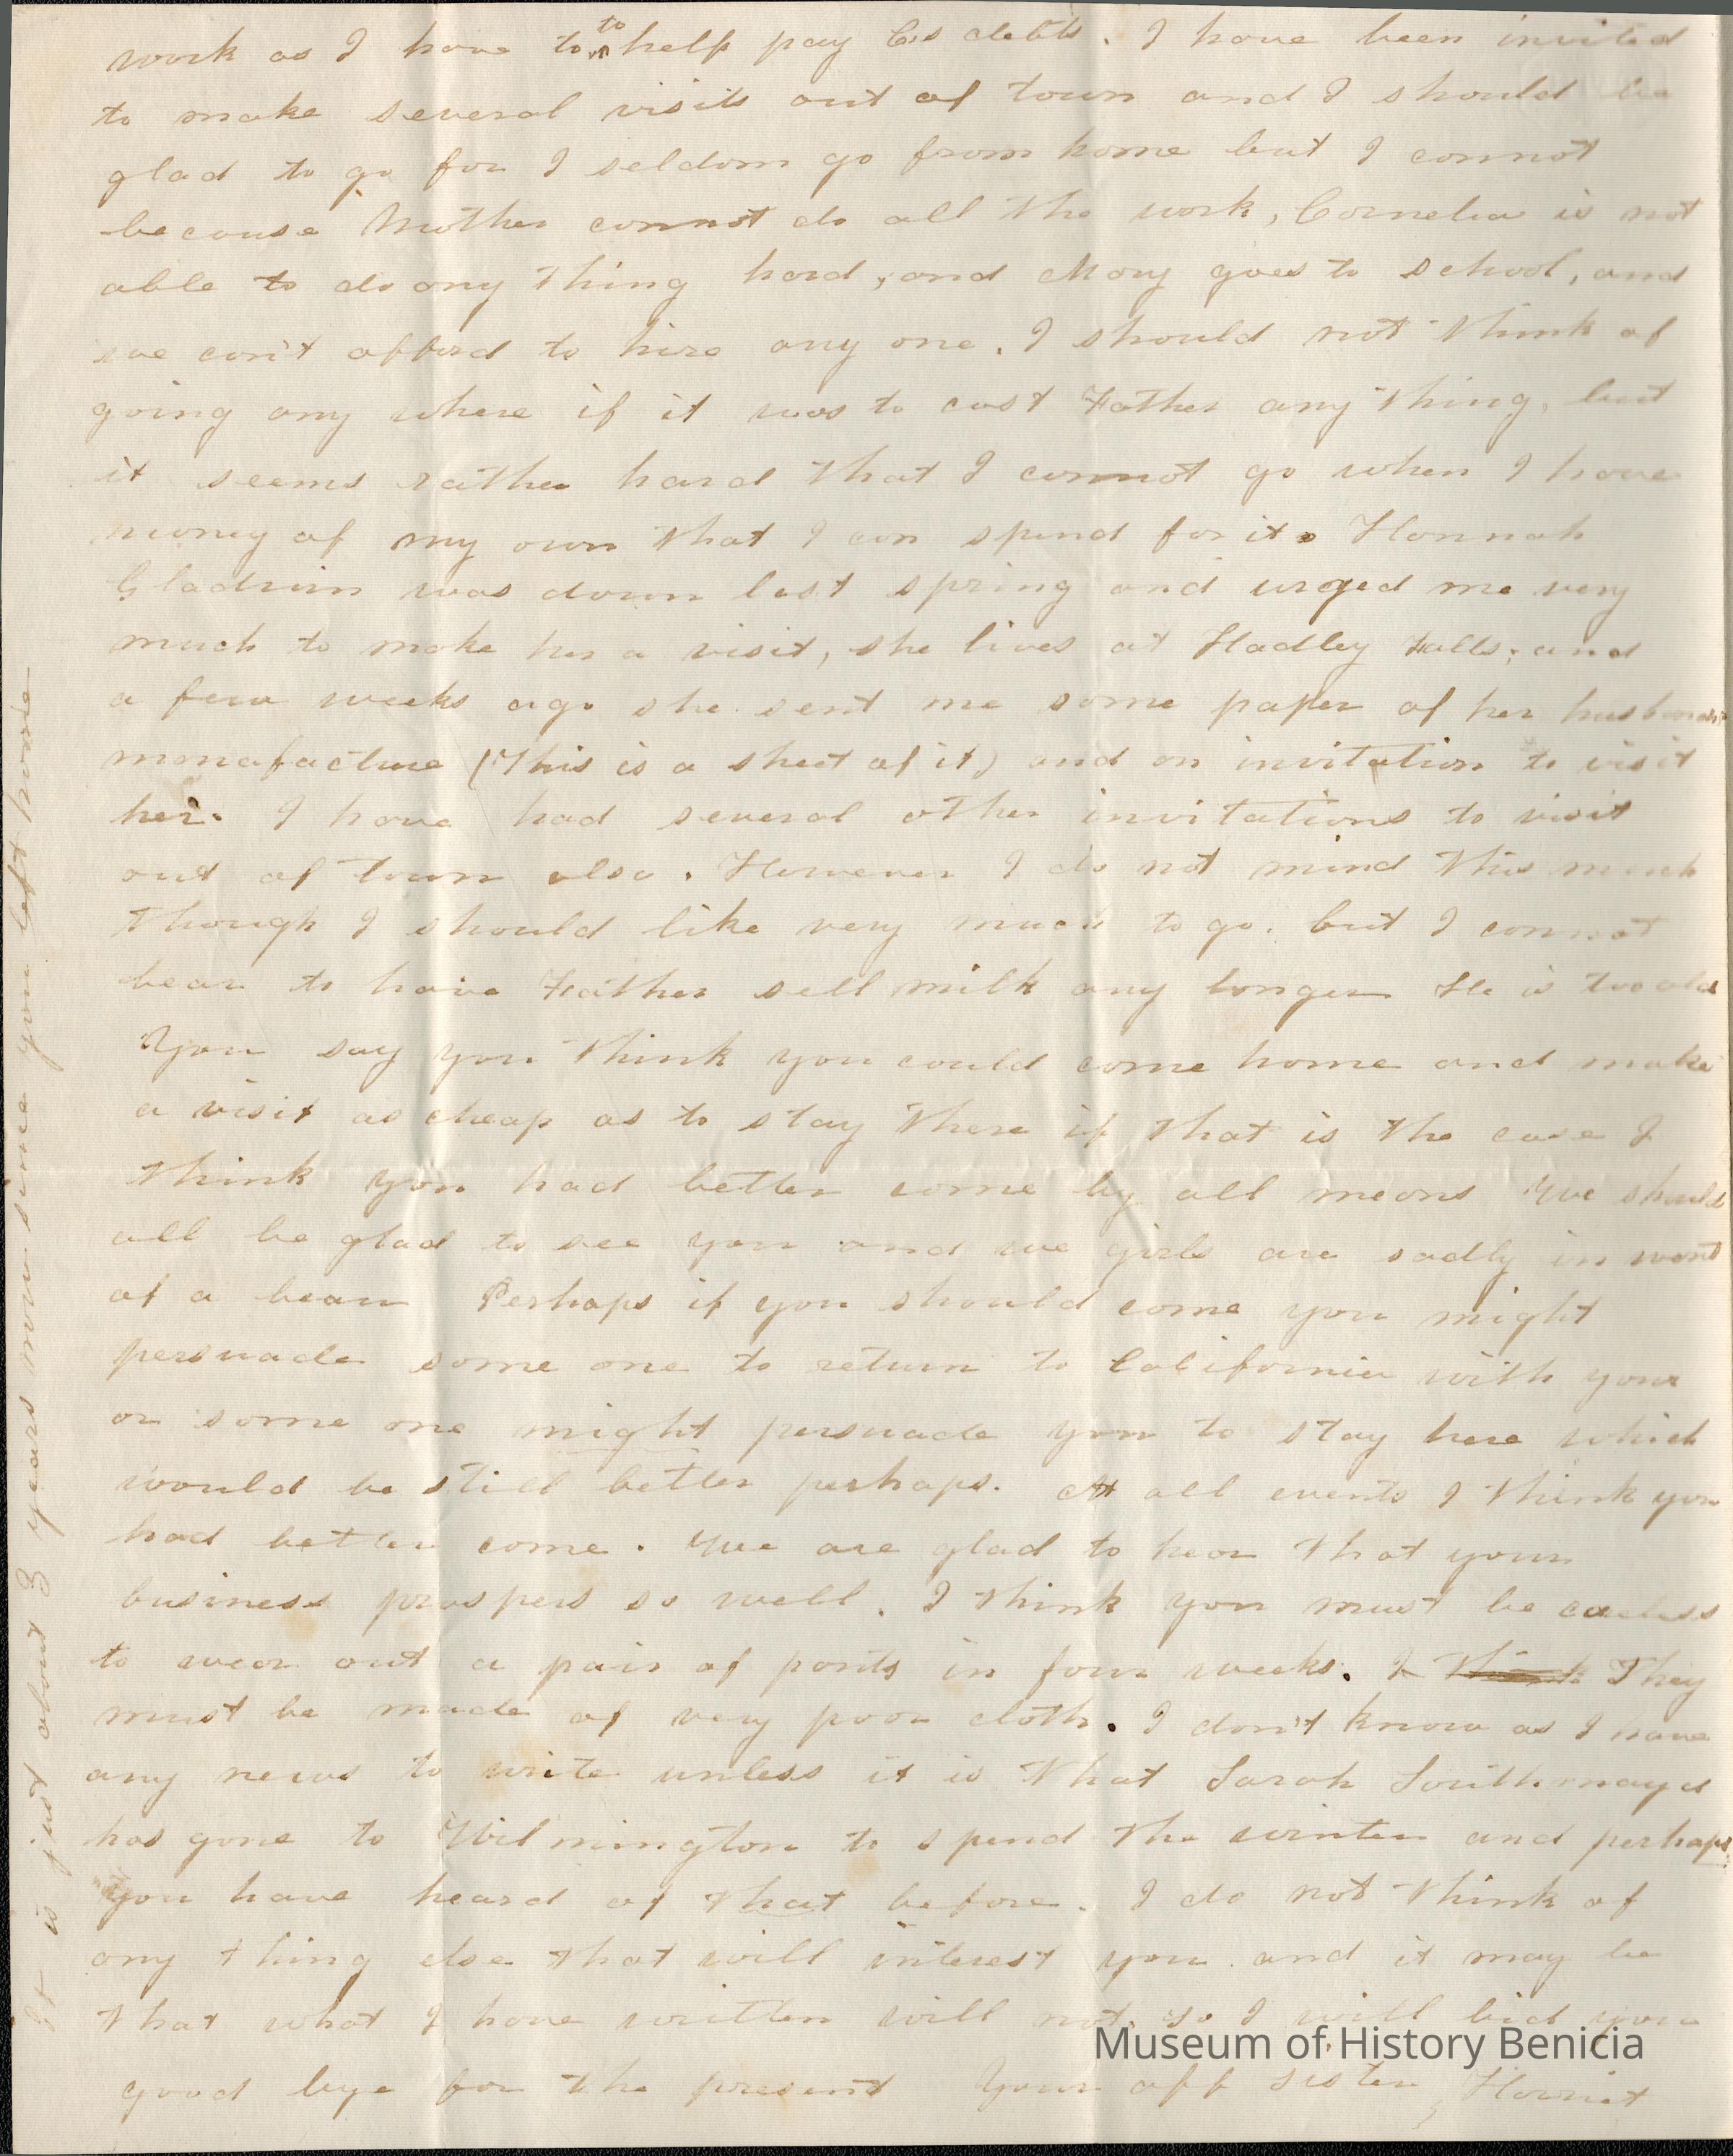 work as I have to to help pay C's debts. I have been invited
to make several visits out of town and I should be
glad to go for I seldom go from home but I cannot
because Mother cannot do all the work, Cornelia is not
able to do any thing hard, and Mary goes to school, and
we can't afford to hire any one. I should not think of
going any where if it was to cost Father any thing, but
it seems rather hard that I cannot go when I have
money of my own that I can spend for it. Hannah
Gladwin was down last spring and urged me very
much to make her a visit, she lives at Hadley Falls; and
a few weeks ago she sent me some paper of her husbands
manafacture (This is a sheet of it) and an invitation to visit
her. I have had several other invitations to visit
out of town also. However I do not mind this much
though I should like very much to go. but I cannot
bear to have Father sell milk any longer He is too old
You say you think you could come home and make
a visit as cheap as to stay there if that is the case I
think you had better come by all means We should
all be glad to see you and we girls are sadly in want
of a beau Perhaps if you should come you might
persuade some one to return to California with you
or some one might persuade you to stay here which
would be still better perhaps. At all events I think you
had better come. We are glad to hear that your
business prospers so well. I think you must be careless
to wear out a pair of pants in four weeks. I think They
must be made of very poor cloth. I don't know as I have
any news to write unless it is that Sarah Southmayd
has gone to Wilmington to spend the winter and perhaps
you have heard of that before. I do not think of
any thing else that will interest you and it may be
that what I have written will not, so I will bid you
good bye for the present Your aff sister Harriet
It is just about 3 years now since you left home
Museum of History Benicia